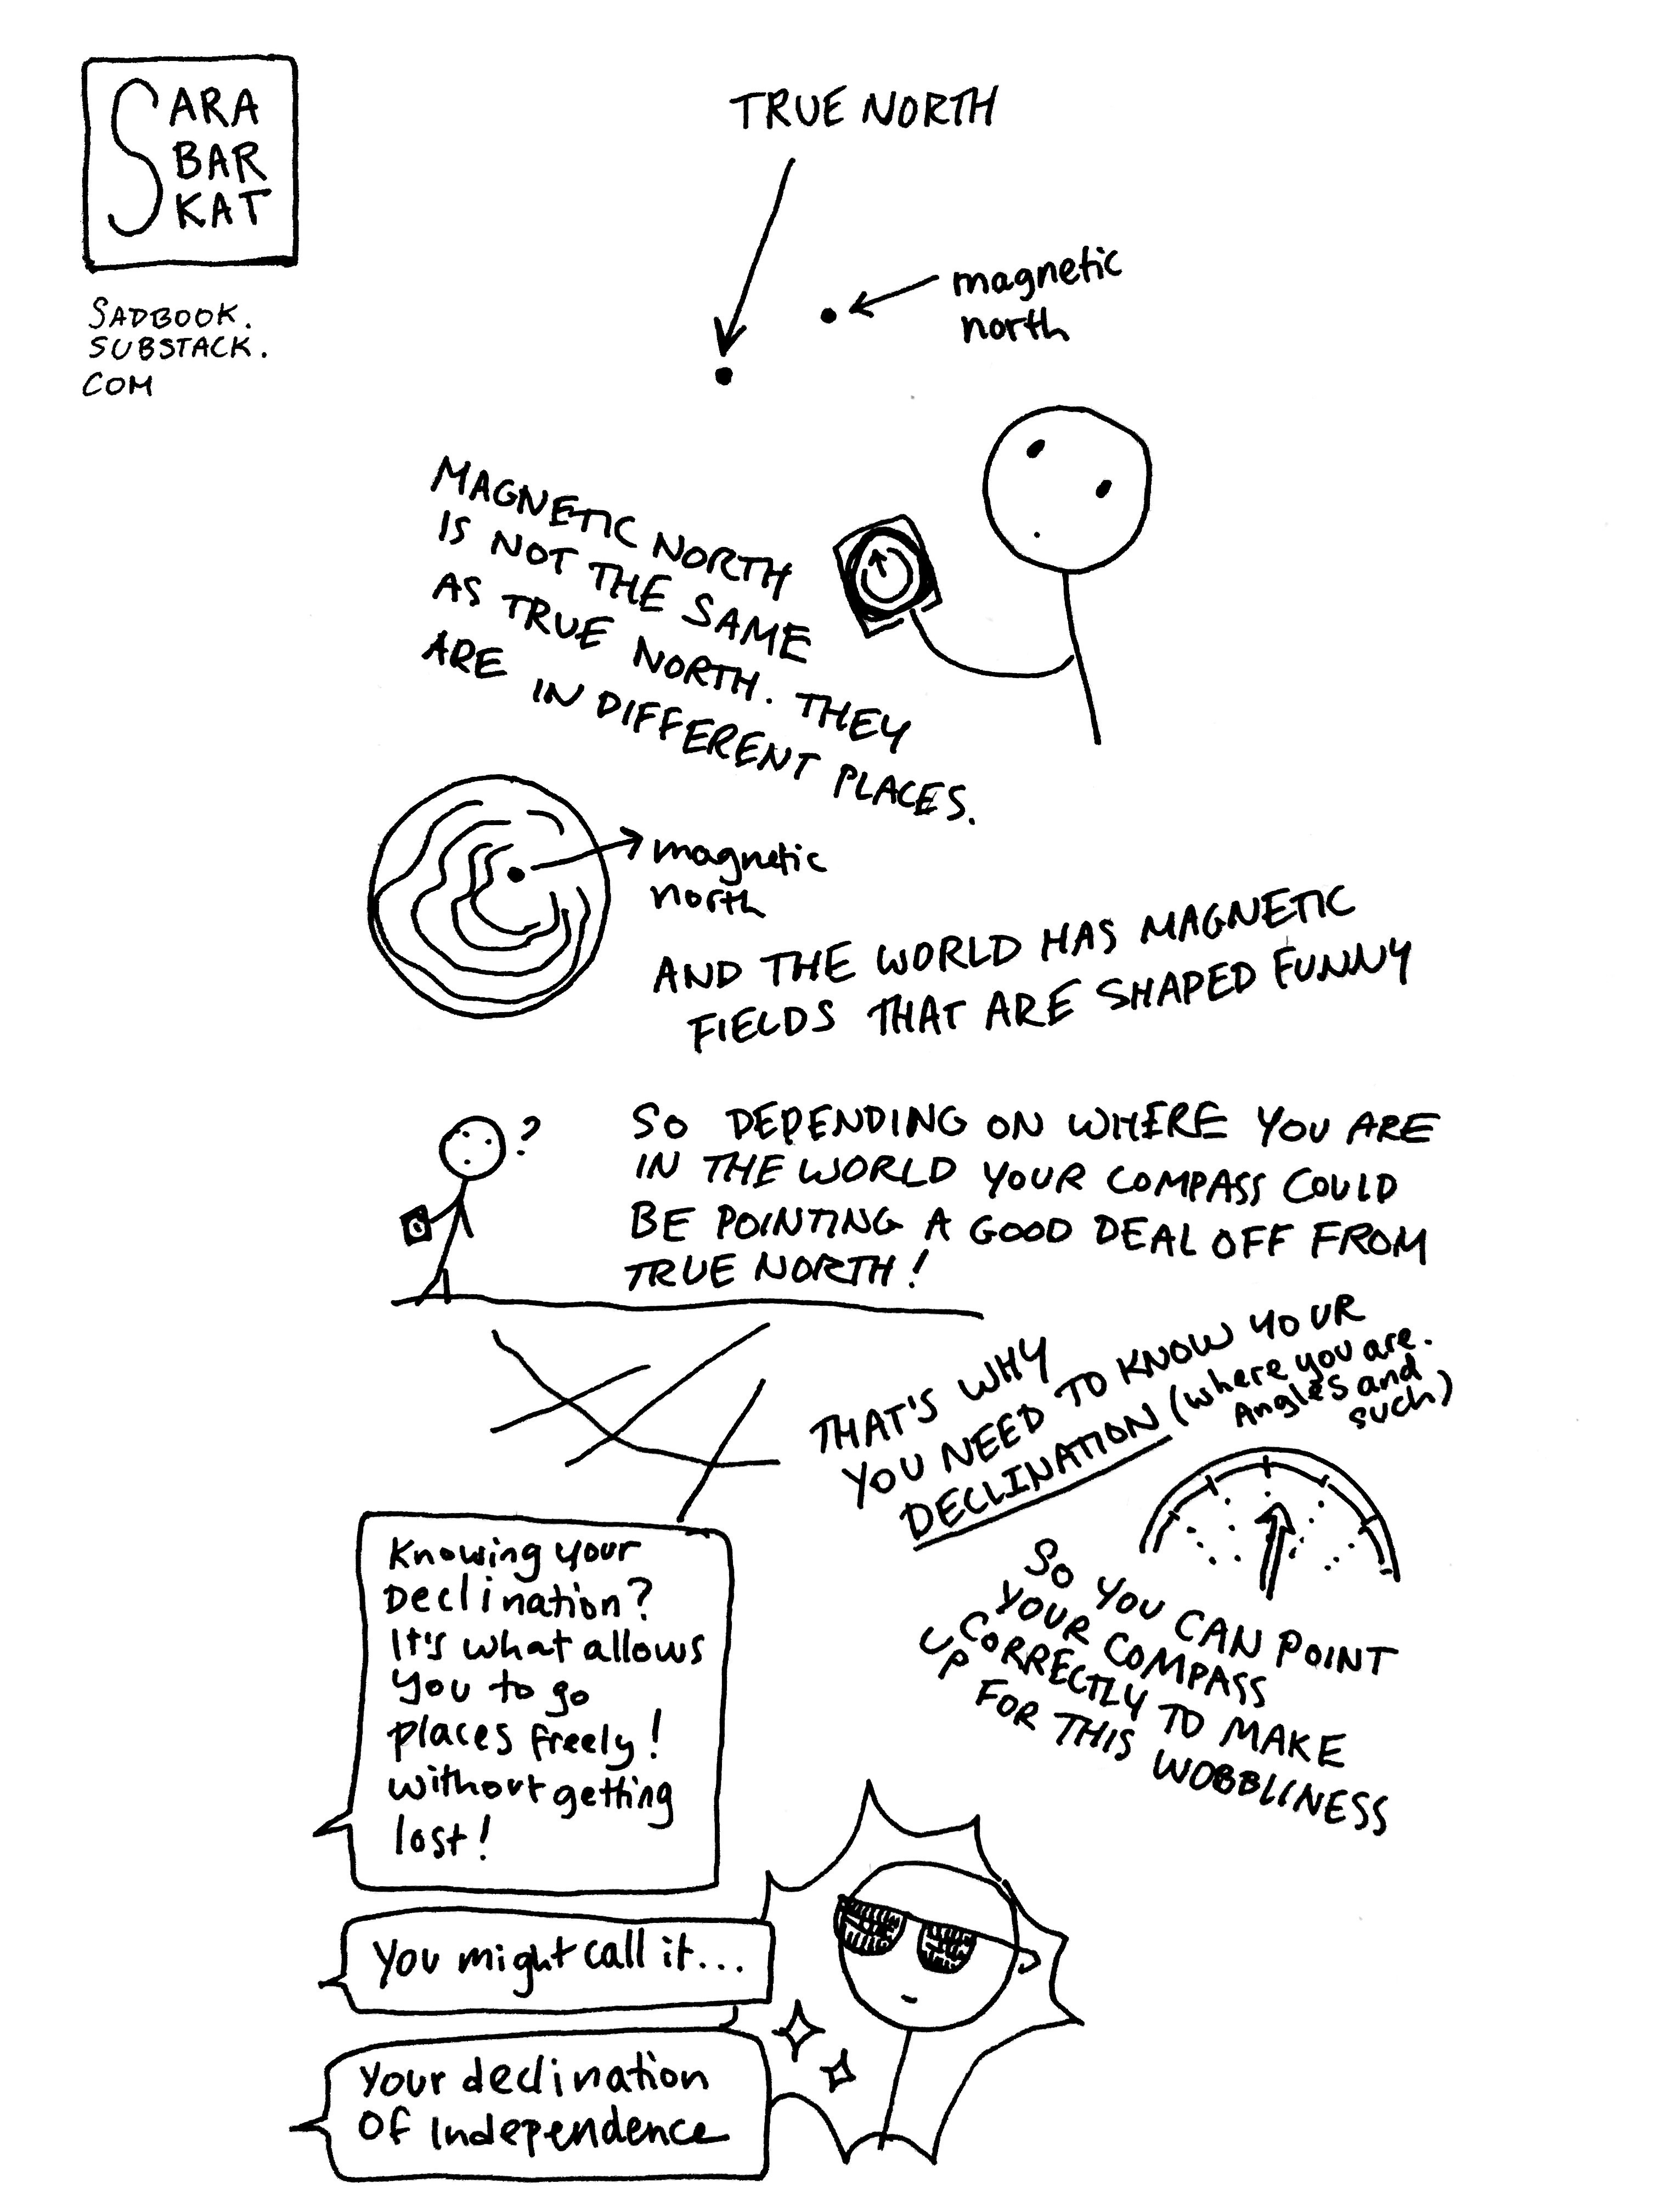 SARA
BAR
KAT
SADBOOK.
SUBSTACK.
COM
TRUE NORTH
magnetic
north
MAGNETIC NORTH
IS NOT THE SAME
AS TRUE NORTH. THEY
ARE IN DIFFERENT PLACES.
magnetic
north
AND THE WORLD HAS MAGNETIC
FIELDS THAT ARE SHAPED FUNNY
?
SO DEPENDING ON WHERE YOU ARE
IN THE WORLD YOUR COMPASS COULD
BE POINTING A GOOD DEAL OFF FROM
TRUE NORTH!
THAT'S WHY
YOU NEED TO KNOW YOUR
DECLINATION (where you are.
Angles and
such)
SO YOU CAN POINT
YOUR COMPASS
CORRECTLY TO MAKE
UP FOR THIS WOBBLINESS
Knowing your
Declination?
It's what allows
you to go
places freely!
without getting
lost!
You might call it...
Your declination
Of Independence